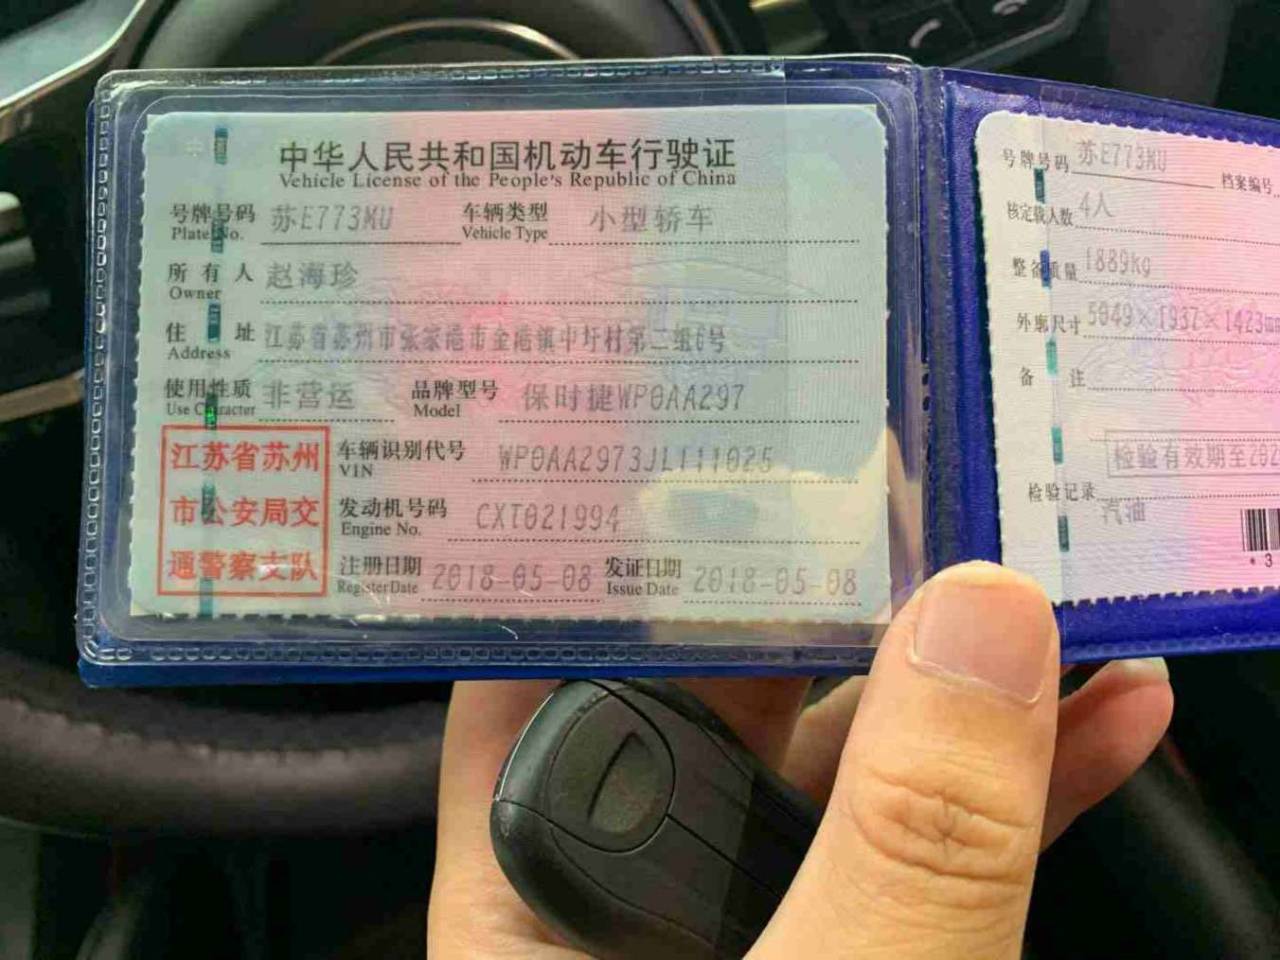 中华人民共和国机动车行驶证
Vehicle License of the People's Republic of China
号牌号码 苏E773MU 车辆类型 小型轿车
Plate No. Vehicle Type
所有人 赵海珍
Owner
住址 江苏省苏州市张家港市金港镇中圩村第二组6号
Address
使用性质 非营运 品牌型号 保时捷WP0AA297
Use Character Model
江苏省苏州
市公安局交
通警察支队
车辆识别代号 WP0AA2973JL111025
VIN
发动机号码 CXT021994
Engine No.
注册日期 2018-05-08 发证日期 2018-05-08
Register Date Issue Date
号牌号码 苏E773MU 档案编号
核定载人数 4人
整备质量 1889kg
外廓尺寸 5049×1937×1423m
备注
检验有效期至202
检验记录
汽油
*3